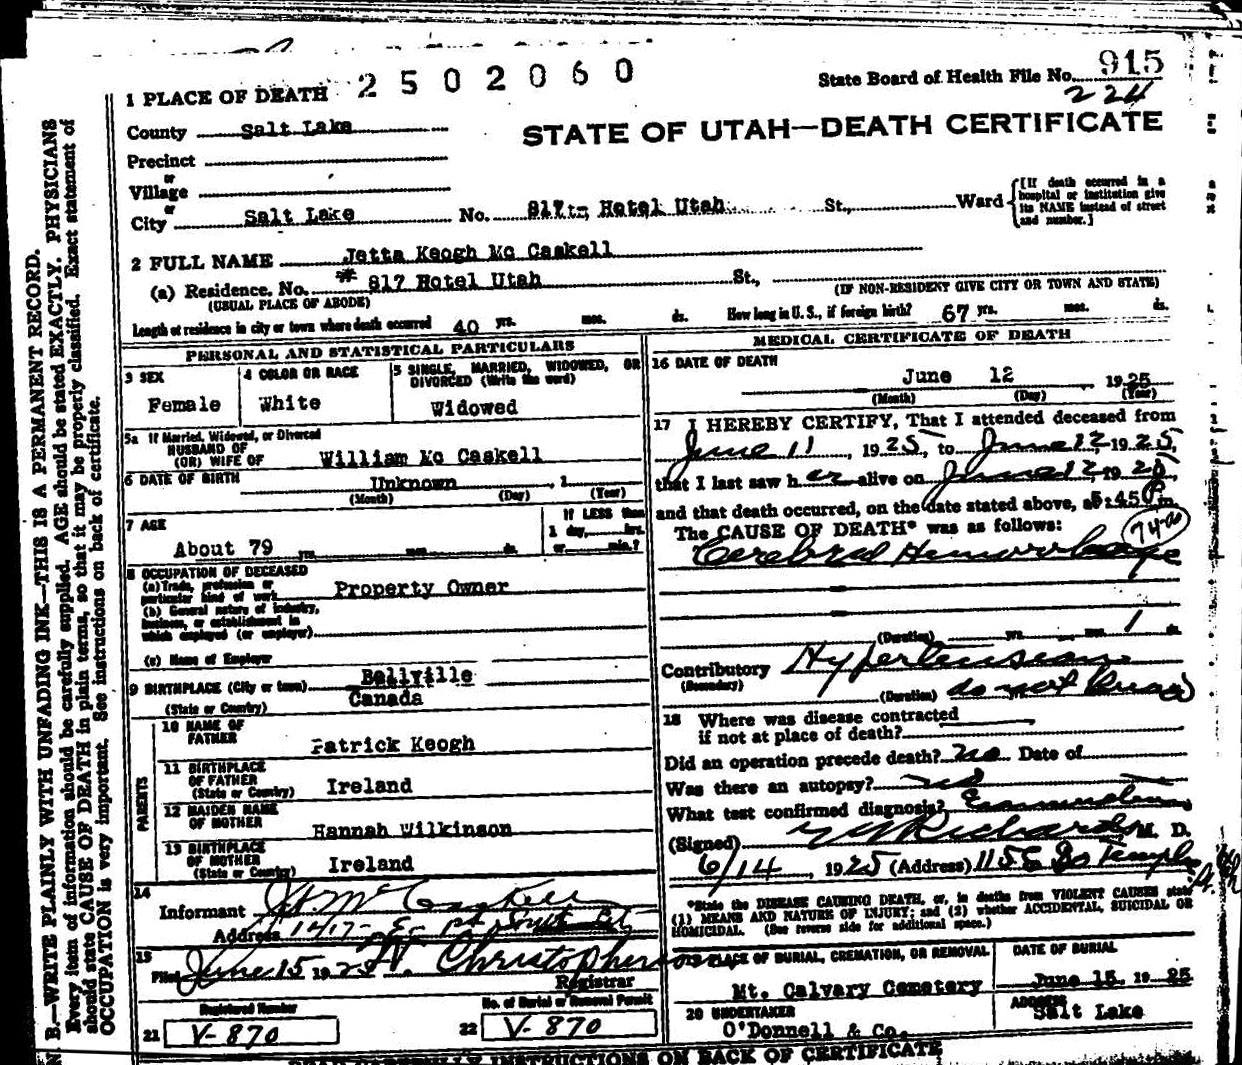 N. B.—WRITE PLAINLY WITH UNFADING INK—THIS IS A PERMANENT RECORD.
Every item of information should be carefully supplied. AGE should be stated EXACTLY. PHYSICIANS
should state CAUSE OF DEATH in plain terms, so that it may be properly classified. Exact statement of
OCCUPATION is very important. See instructions on back of certificate.
2502060
State Board of Health File No. 915
224
1 PLACE OF DEATH
STATE OF UTAH—DEATH CERTIFICATE
County Salt Lake
Precinct
or
Village
or
City Salt Lake No. 817 Hotel Utah St., Ward
[If death occurred in a
hospital or institution give
its NAME instead of street
and number.]
2 FULL NAME Jetta Keogh Mc Caskell
(a) Residence. No. # 817 Hotel Utah St.,
(USUAL PLACE OF ABODE)
(IF NON-RESIDENT GIVE CITY OR TOWN AND STATE)
Length of residence in city or town where death occurred 40 yrs. mos. ds. How long in U. S., if foreign birth? 67 yrs. mos. ds.
PERSONAL AND STATISTICAL PARTICULARS
3 SEX
Female
4 COLOR OR RACE
White
5 SINGLE, MARRIED, WIDOWED, OR
DIVORCED (Write the word)
Widowed
5a If Married, Widowed, or Divorced
HUSBAND OF
(OR) WIFE OF William Mc Caskell
6 DATE OF BIRTH Unknown , 1
(Month) (Day) (Year)
7 AGE
About 79 yrs. mos. ds.
If LESS than
1 day, hrs.
or min.?
8 OCCUPATION OF DECEASED
(a) Trade, profession or
particular kind of work Property Owner
(b) General nature of industry,
business, or establishment in
which employed (or employer)
(c) Name of Employer
9 BIRTHPLACE (City or town) Bellville
(State or Country) Canada
PARENTS
10 NAME OF
FATHER Patrick Keogh
11 BIRTHPLACE
OF FATHER
(State or Country) Ireland
12 MAIDEN NAME
OF MOTHER Hannah Wilkinson
13 BIRTHPLACE
OF MOTHER
(State or Country) Ireland
14
Informant Mc Caskell
Address
15
Filed June 15 1925 Christopherson
Registrar
Registered Number
21 V-870
No. of Burial or Removal Permit
22 V-870
MEDICAL CERTIFICATE OF DEATH
16 DATE OF DEATH
June 12, 1925
(Month) (Day) (Year)
17 I HEREBY CERTIFY, That I attended deceased from
June 11, 1925, to June 12, 1925,
that I last saw her alive on June 12, 1925,
and that death occurred, on the date stated above, at 5:45 P m.
The CAUSE OF DEATH* was as follows:
74-a
Cerebral Hemorrhage
(Duration) yrs. mos. 1 ds.
Contributory Hypertension
(Secondary)
(Duration) do not know
18 Where was disease contracted
if not at place of death?
Did an operation precede death? no Date of
Was there an autopsy? no
What test confirmed diagnosis? Examination
(Signed) Richards, M. D.
6/14, 1925 (Address) 115 E So Temple
*State the DISEASE CAUSING DEATH, or, in deaths from VIOLENT CAUSES state
(1) MEANS AND NATURE OF INJURY; and (2) whether ACCIDENTAL, SUICIDAL OR
HOMICIDAL. (See reverse side for additional space.)
19 PLACE OF BURIAL, CREMATION, OR REMOVAL
Mt. Calvary Cemetery
DATE OF BURIAL
June 15, 1925
20 UNDERTAKER
O'Donnell & Co.
ADDRESS
Salt Lake
READ CAREFULLY INSTRUCTIONS ON BACK OF CERTIFICATE